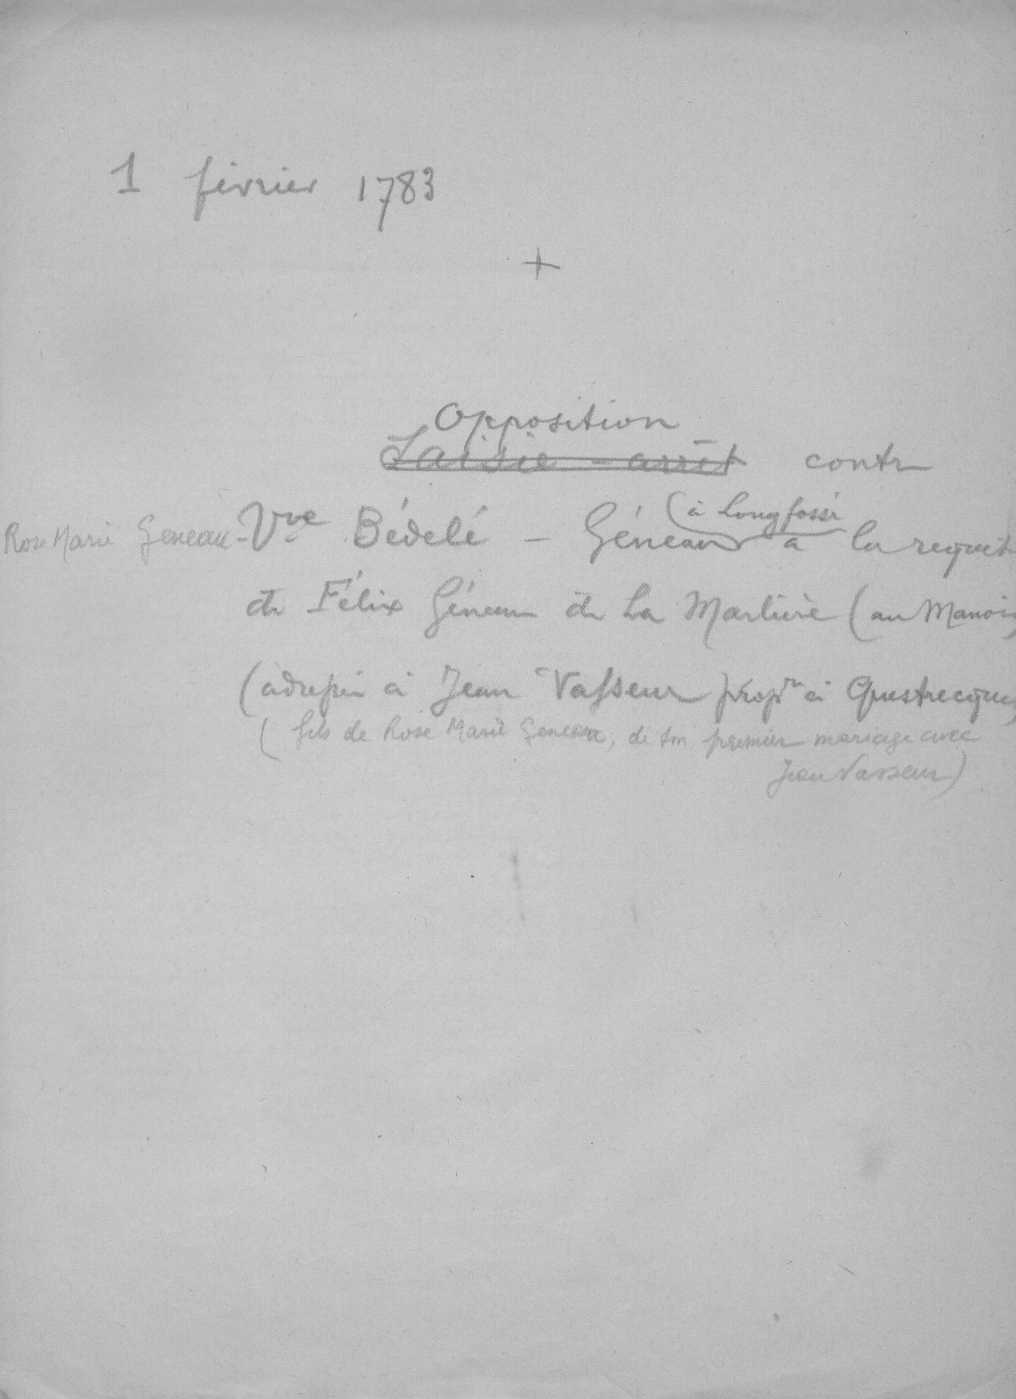 1 février 1783
+
Opposition
Saisie-arrêt contre
(à Longfossé
Rose Marie Geneau - Vve Bédelé - Géneau à la requête
de Félix Géneau de La Marlière (au Manoir)
à Jean Vasseur propre à Questrecques
(fils de Rose Marie Geneau, de son premier mariage avec
Jean Vasseur)